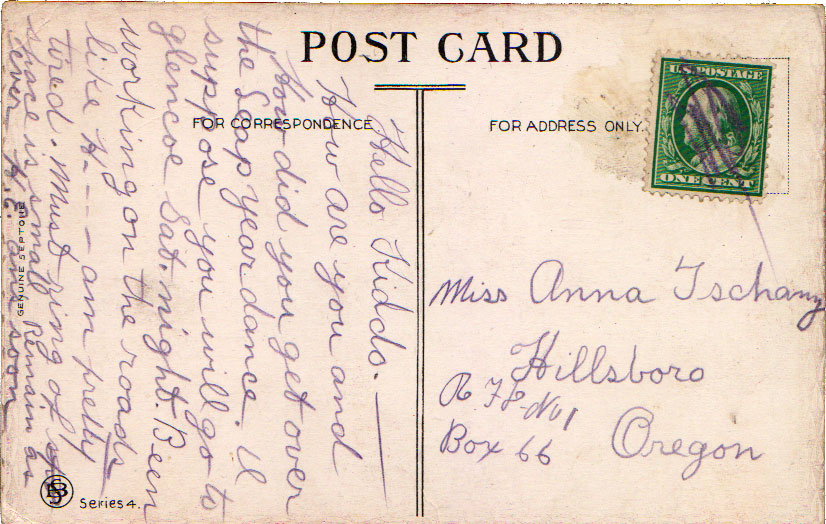 POST CARD
FOR CORRESPONDENCE
FOR ADDRESS ONLY.
U.S. POSTAGE
ONE CENT
Hello Kidds.
How are you and
how did you get over
the Leap year dance. Il
suppose you will go to
glencoe Sat. night. Been
working on the roads
like H--- am pretty
tired. Must ring of as
space is small Remain as
ever H.E. ans soon
Miss Anna Tschany
Hillsboro
R F D No 1
Box 66
Oregon
GENUINE SEPTONE
Series 4.